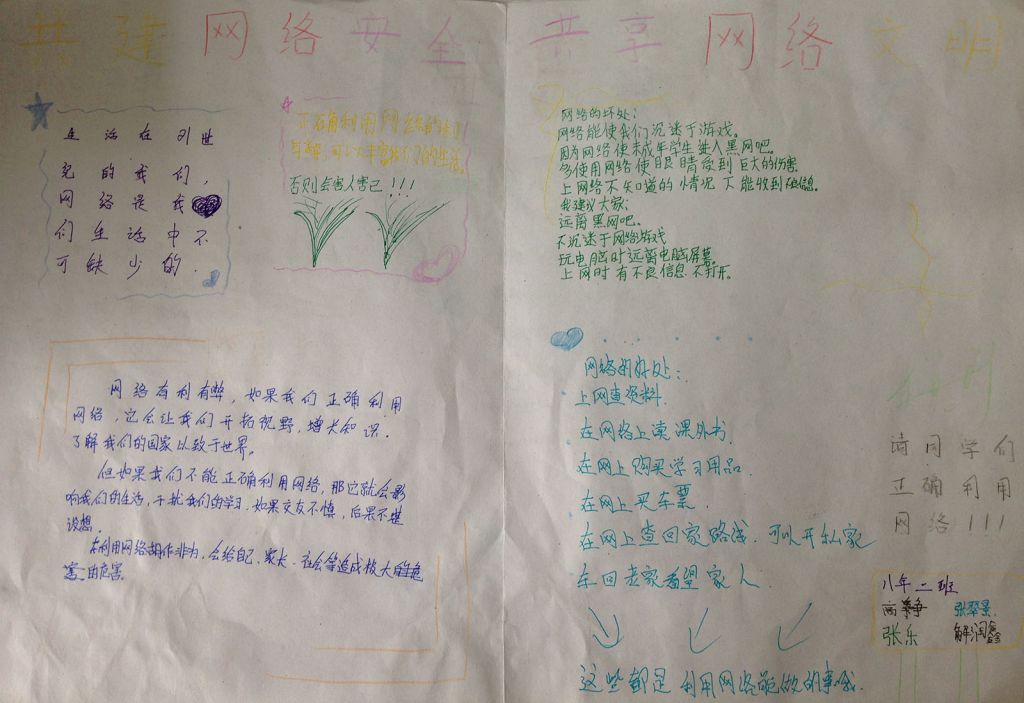 共建网络安全 共享网络文明
生活在21世
纪的我们，
网络是我
们生活中不
可缺少的.
正确利用网络的
否则会害人害己!!!
网络有利有弊，如果我们正确利用
网络，它会让我们开拓视野，增长知识.
了解我们的国家以致于世界。
但如果我们不能正确利用网络，那它就会影
响我们的生活，干扰我们的学习，如果交友不慎，后果不堪
设想.
在利用网络胡作非为，会给自己、家长、社会等造成极大的危
害
网络的坏处：
网络能使我们沉迷于游戏。
因为网络使未成年学生进入黑网吧。
多使用网络使眼睛受到巨大的伤害
上网络不知道的情况不能收到
我建议大家：
远离黑网吧。
不沉迷于网络游戏
玩电脑时远离电脑屏幕。
上网时有不良信息不打开。
网络的好处：
上网查资料
在网络上读课外书
在网上购买学习用品
在网上买车票
在网上查回家路线.可以开私家
车回老家看望家人
这些都是利用网络能做的事哦
请同学们
正确利用
网络!!!
八年二班
高 张翠景
张乐 解润鑫